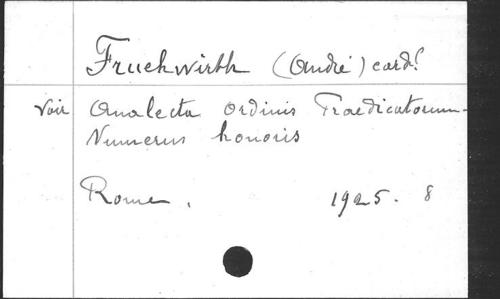 Fruehwirth (André) cardl
Voir Analecta Ordinis Praedicatorum -
Numerus honoris
Rome, 1925. 8